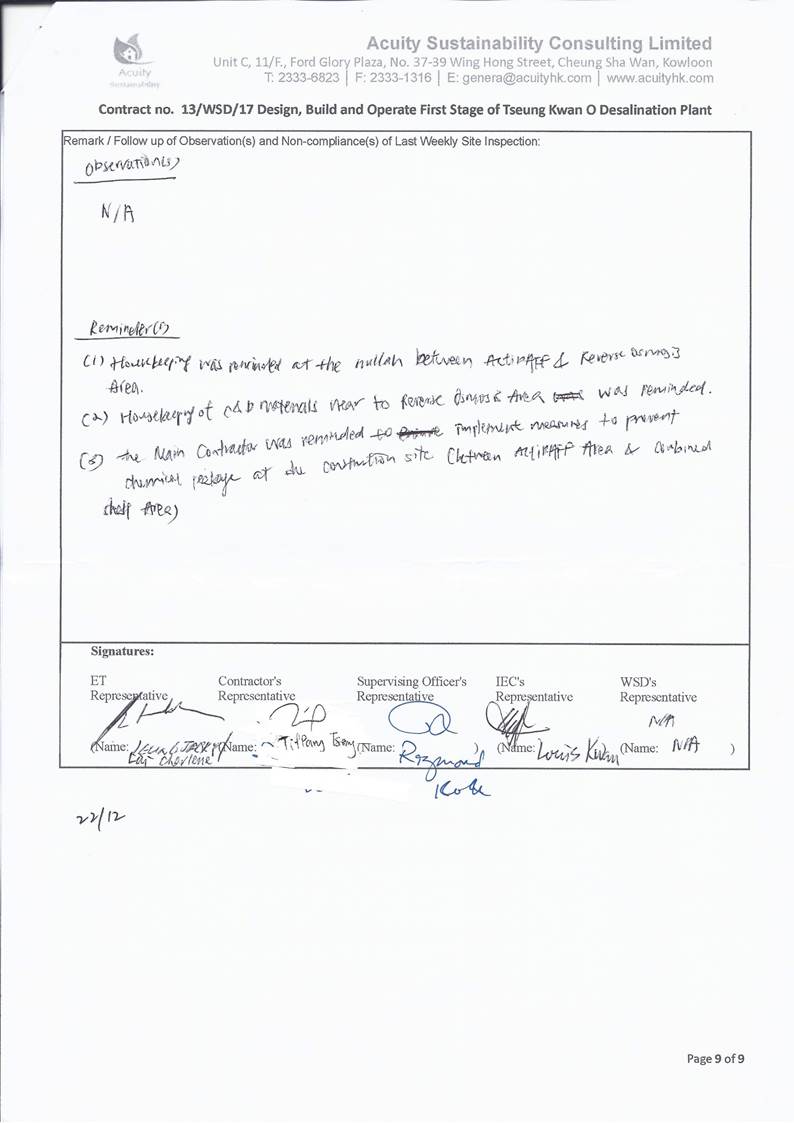 Acuity
Sustainability
Acuity Sustainability Consulting Limited
Unit C, 11/F., Ford Glory Plaza, No. 37-39 Wing Hong Street, Cheung Sha Wan, Kowloon
T: 2333-6823 | F: 2333-1316 | E: genera@acuityhk.com | www.acuityhk.com
Contract no. 13/WSD/17 Design, Build and Operate First Stage of Tseung Kwan O Desalination Plant
Remark / Follow up of Observation(s) and Non-compliance(s) of Last Weekly Site Inspection:
Observation(s)
N/A
Reminder(s)
(1) Housekeeping was reminded at the nullah between ActiDAFF & Reverse Osmosis
Area.
(2) Housekeeping of C&D materials near to Reverse Osmosis Area was reminded.
(3) the Main Contractor was reminded to implement measures to prevent
chemical leakage at the construction site (between ActiDAFF Area & Combined
shelf Area)
Signatures:
ET Contractor's Supervising Officer's IEC's WSD's
Representative Representative Representative Representative Representative
N/A
(Name: (Name: Titpang Tsang (Name: Raymond ) (Name: Louis Kwan (Name: N/A )
Lai Cherlene
Koke
22/12
Page 9 of 9